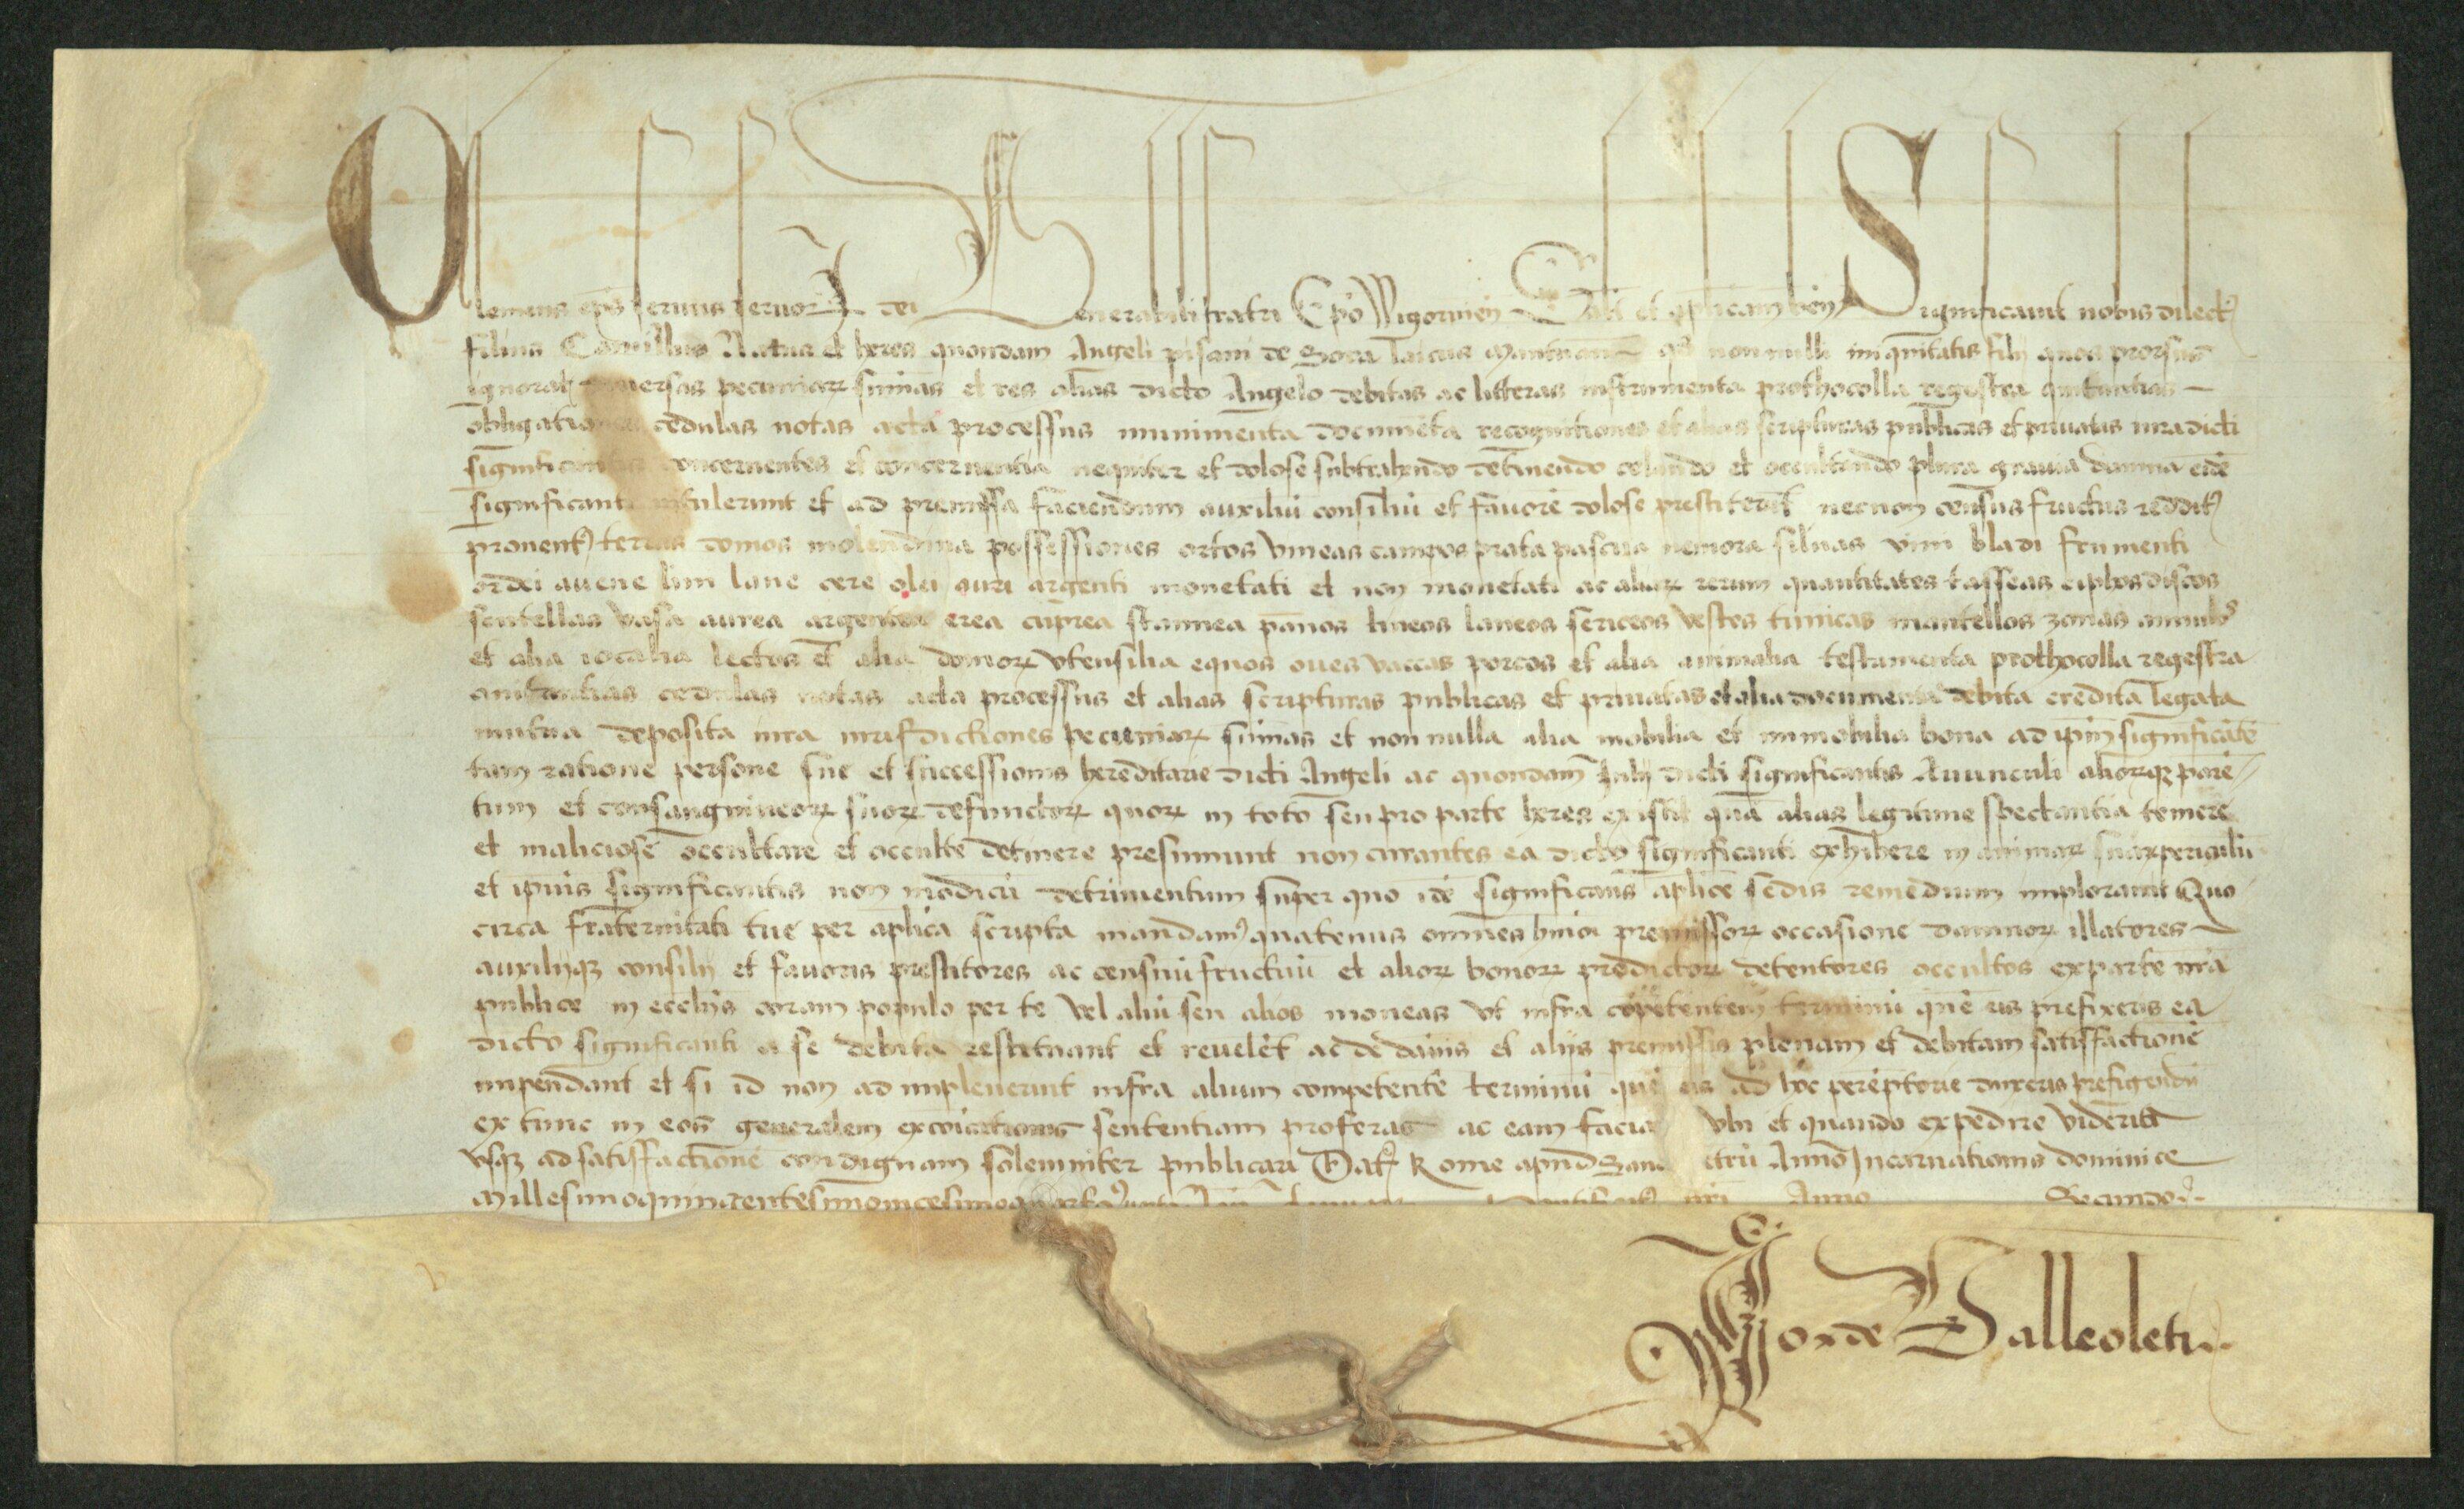 Clemens ep̄s seruus seruoꝝ dei Venerabili fratri Ep̄o Wigornien̄ Salt̄ et ap̄licam ben̄ Significauit nobis dilect9
filius Camillus Natus et heres quondam Angeli pisani de laicus q9 non nulli iniquitatis filij quos prorsus
ignorat diuersas pecuniaꝝ sum̄as et res alias dicto Angelo debitas ac litteras instrumenta prothocolla regestra quitantias
obligationes cedulas notas acta processus munimenta documēta recognitiones et alias scripturas publicas et priuatas iura dicti
significantis concernentes et concernentia nequiter et dolose subtrahendo detinendo celando et occultando plura grauia damna eidē
significanti intulerunt et ad premissa faciendum auxiliū consiliū et fauorē dolose prestiterūt necnon census fructus reddit9
prouent9 terras domos molendina possessiones ortos vineas campos prata pascua nemora siluas vini bladi frumenti
ordei auene lini lane cere olei auri argenti monetati et non monetati ac aliaꝝ rerum quantitates tasseas ciphos discos
scutellas vasa aurea argentea erea cuprea stannea pānos lineos laneos sericeos vestes tunicas mantellos zonas annulos
et alia iocalia lectos et alia domoꝝ vtensilia equos oues vaccas porcos et alia animalia testamenta prothocolla regestra
quitantias cedulas notas acta processus et alias scripturas publicas et priuatas et alia documenta debita credita legata
mutua deposita iura iurisdictiones pecuniaꝝ sum̄as et non nulla alia mobilia et immobilia bona ad ip̄m significātē
tam ratione persone sue et successionis hereditarie dicti Angeli ac quondam Julij dicti significantis Auunculi alioꝝqꝫ parē
tum et consanguineoꝝ suoꝝ defunctoꝝ quoꝝ in toto seu pro parte heres existit quā alias legitime spectantia temere
et maliciose occultare et occulte detinere presumunt non curantes ea dicto significanti exhibere in animaꝝ suaꝝ periculū
et ip̄ius significantis non modicū detrimentum super quo idē significans ap̄lice sedis remedium implorauit Quo
circa fraternitati tue per ap̄lica scripta mandam9 quatenus omnes hm̄oi premissoꝝ occasione damnoꝝ illatores
auxilijqꝫ consilij et fauoris prestitores ac censuū fructuū et alioꝝ bonoꝝ predictoꝝ detentores occultos ex parte nr̄a
publice in ecclijs coram populo per te vel aliū seu alios moneas vt infra cōpetentem terminū quē eis prefixeris ea
dicto significanti a se debita restituant et reuelēt ac de dānis et alijs premissis plenam et debitam satisfactionē
impendant et si id non adimpleuerint infra alium competentē terminū quē eis ad hoc perēptorie duxeris prefigendū
ex tunc in eos generalem excōicationis sententiam proferas ac eam facia vbi et quando expedire viderit̄
vsqꝫ ad satisfactionē condignam solemniter publicari Dat9 Rome apud San etrū Anno Incarnationis dominice
Millesimoquingentesimouicesimoquarto Pontificat9 nr̄i Anno Secundo
Jo de Valleoleti